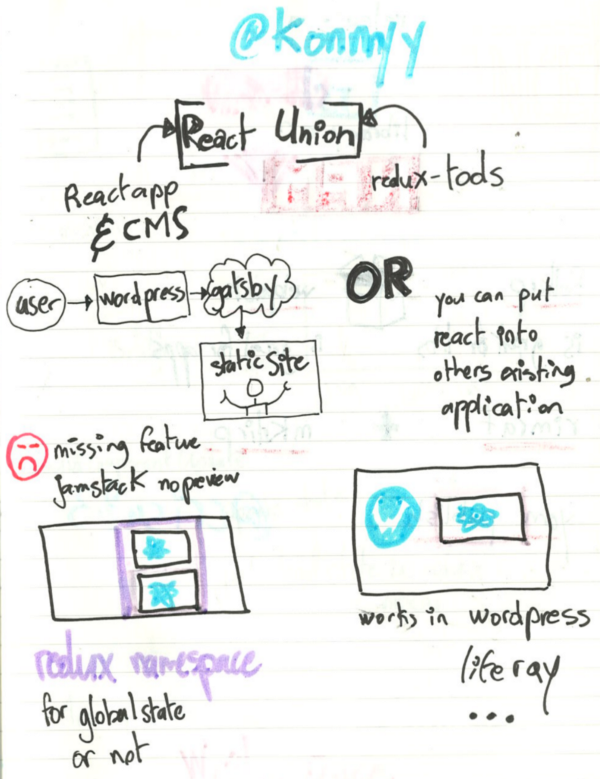 @konmyy
React Union
React app
& CMS
redux-tools
user
wordpress
gatsby
static Site
OR
you can put
react into
others existing
application
missing feature
jamstack no preview
W
works in wordpress
liferay
...
redux namespace
for global state
or not